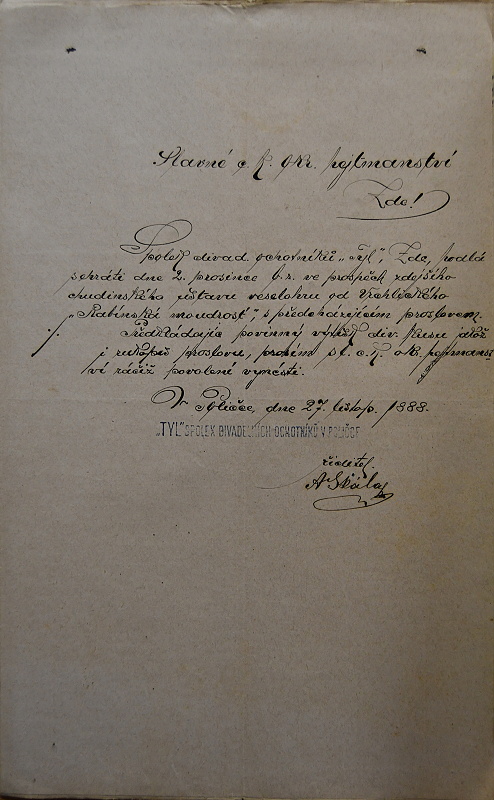 Slavné c. k. okr. hejtmanství
Zde!
Spolek divad. ochotníků „Tyl“, Zde, hodlá
sehráti dne 2. prosince t. r. ve prospěch zdejšího
chudinského ústavu veselohru od Vrchlického
„Rabínská moudrost“, s předcházejícím proslovem.
Předkládaje povinný výtisk div. kusu jakož
i rukopis proslovu, prosím sl. c. k. okr. hejtmanst-
ví račiž povolení vynésti.
V Poličce, dne 27. listop. 1888.
„TYL“ SPOLEK DIVADELNÍCH OCHOTNÍKŮ V POLIČCE
ředitel.
A Skála